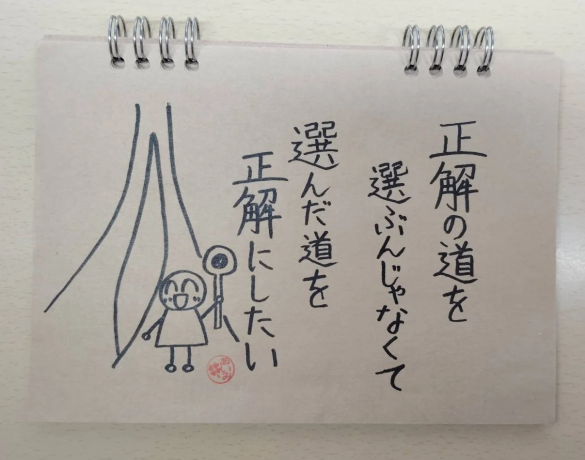 正解の道を
選ぶんじゃなくて
選んだ道を
正解にしたい